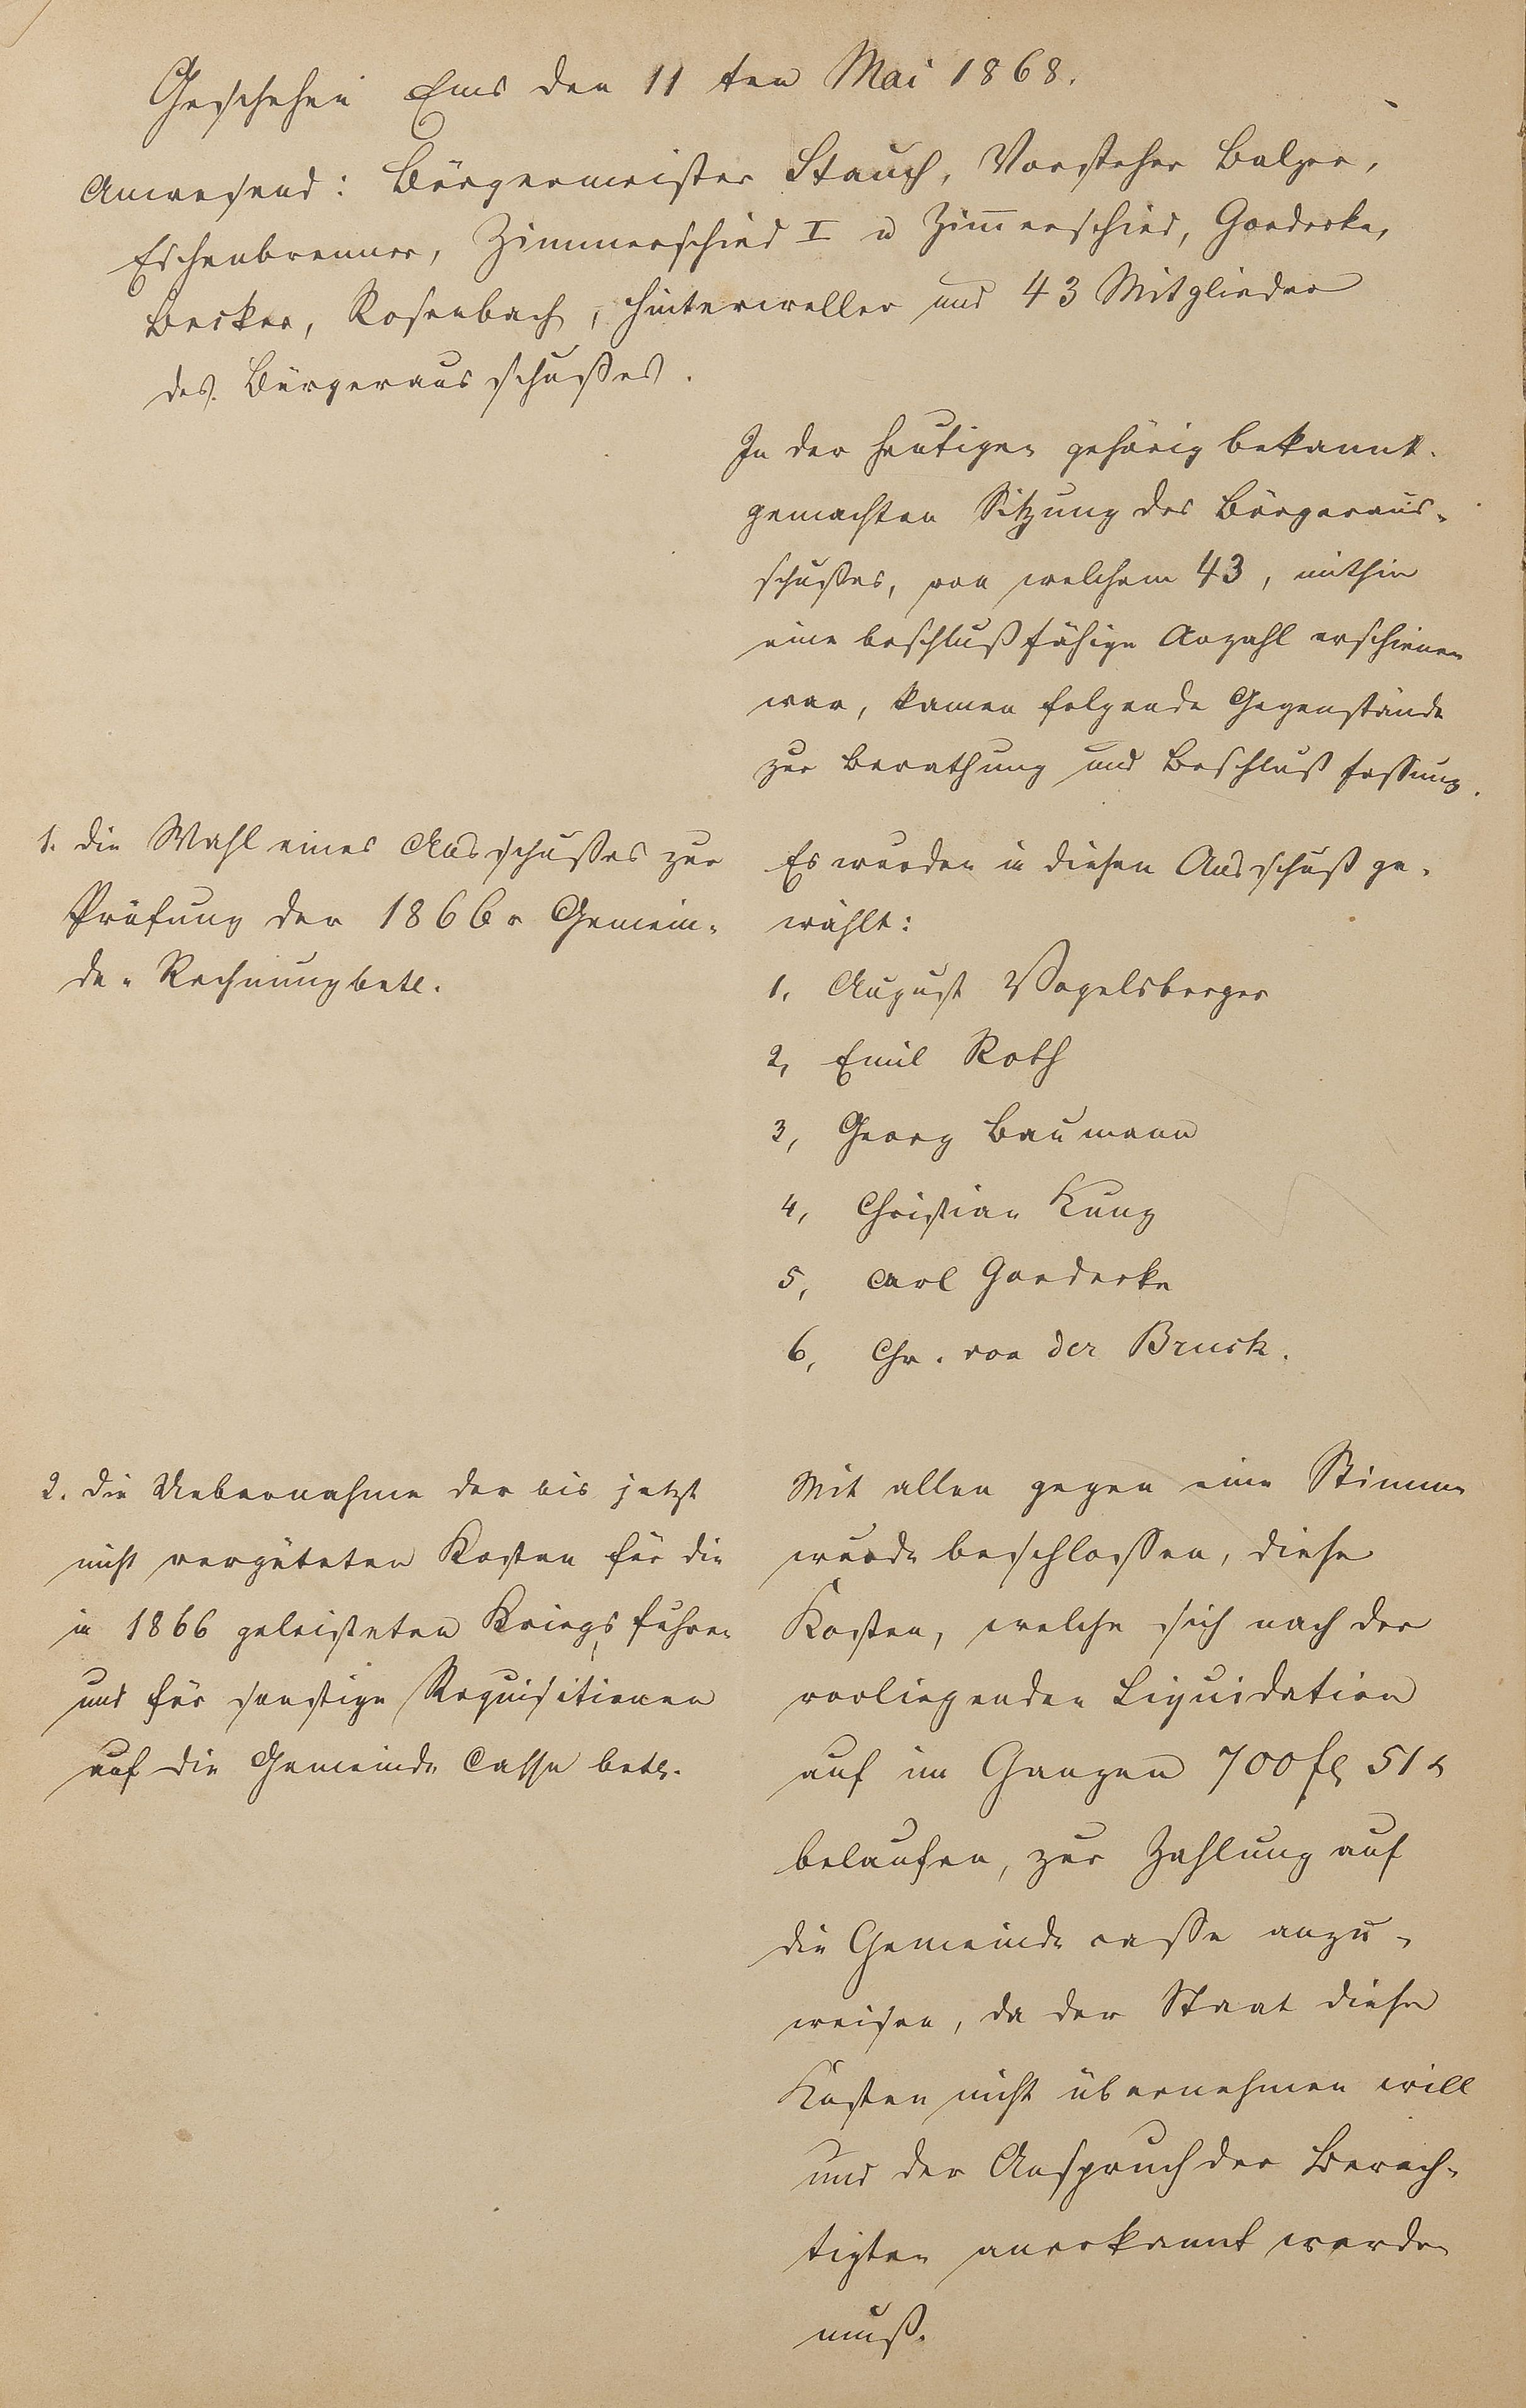 Geschehen Ems den 11ten Mai 1868.
Anwesend: Bürgermeister Stauch, Vorsteher Balzer,
Eschenbrenner, Zimmerschied I u Zim̄erschied, Goedecke,
Becker, Rosenbach, Hinterweller und 43 Mitglieder
des Bürgerausschußes.
In der heutigen gehörig bekannt-
gemachten Sitzung des Bürgeraus-
schußes, von welchem 43, mithin
eine beschlußfähige Anzahl erschienen
war, kamen folgende Gegenstände
zur Berathung und Beschlußfassung.
1. die Wahl eines Ausschußes zur
Prüfung der 1866r Gemein-
de-Rechnung betr.
Es wurden in diesen Ausschuß ge-
wählt:
1, August Vogelsberger
2, Emil Roth
3, Georg Baumann
4, Christian Kunz
5, Carl Goedecke
6, Chr. von der Bruck.
2. die Uebernahme der bis jetzt
nicht vergüteten Kosten für die
in 1866 geleisteten Kriegsfuhren
und für sonstige Requisitionen
auf die Gemeinde Casse betr.
Mit allen gegen eine Stimme
wurde beschlossen, diese
Kosten, welche sich nach der
vorliegenden Liquidation
auf im Ganzen 700 fl 51 x
belaufen, zur Zahlung auf
die Gemeindecasse anzu-
weisen, da der Staat diese
Kosten nicht übernehmen will
und der Anspruch der Berech-
tigten anerkannt werden
muß.